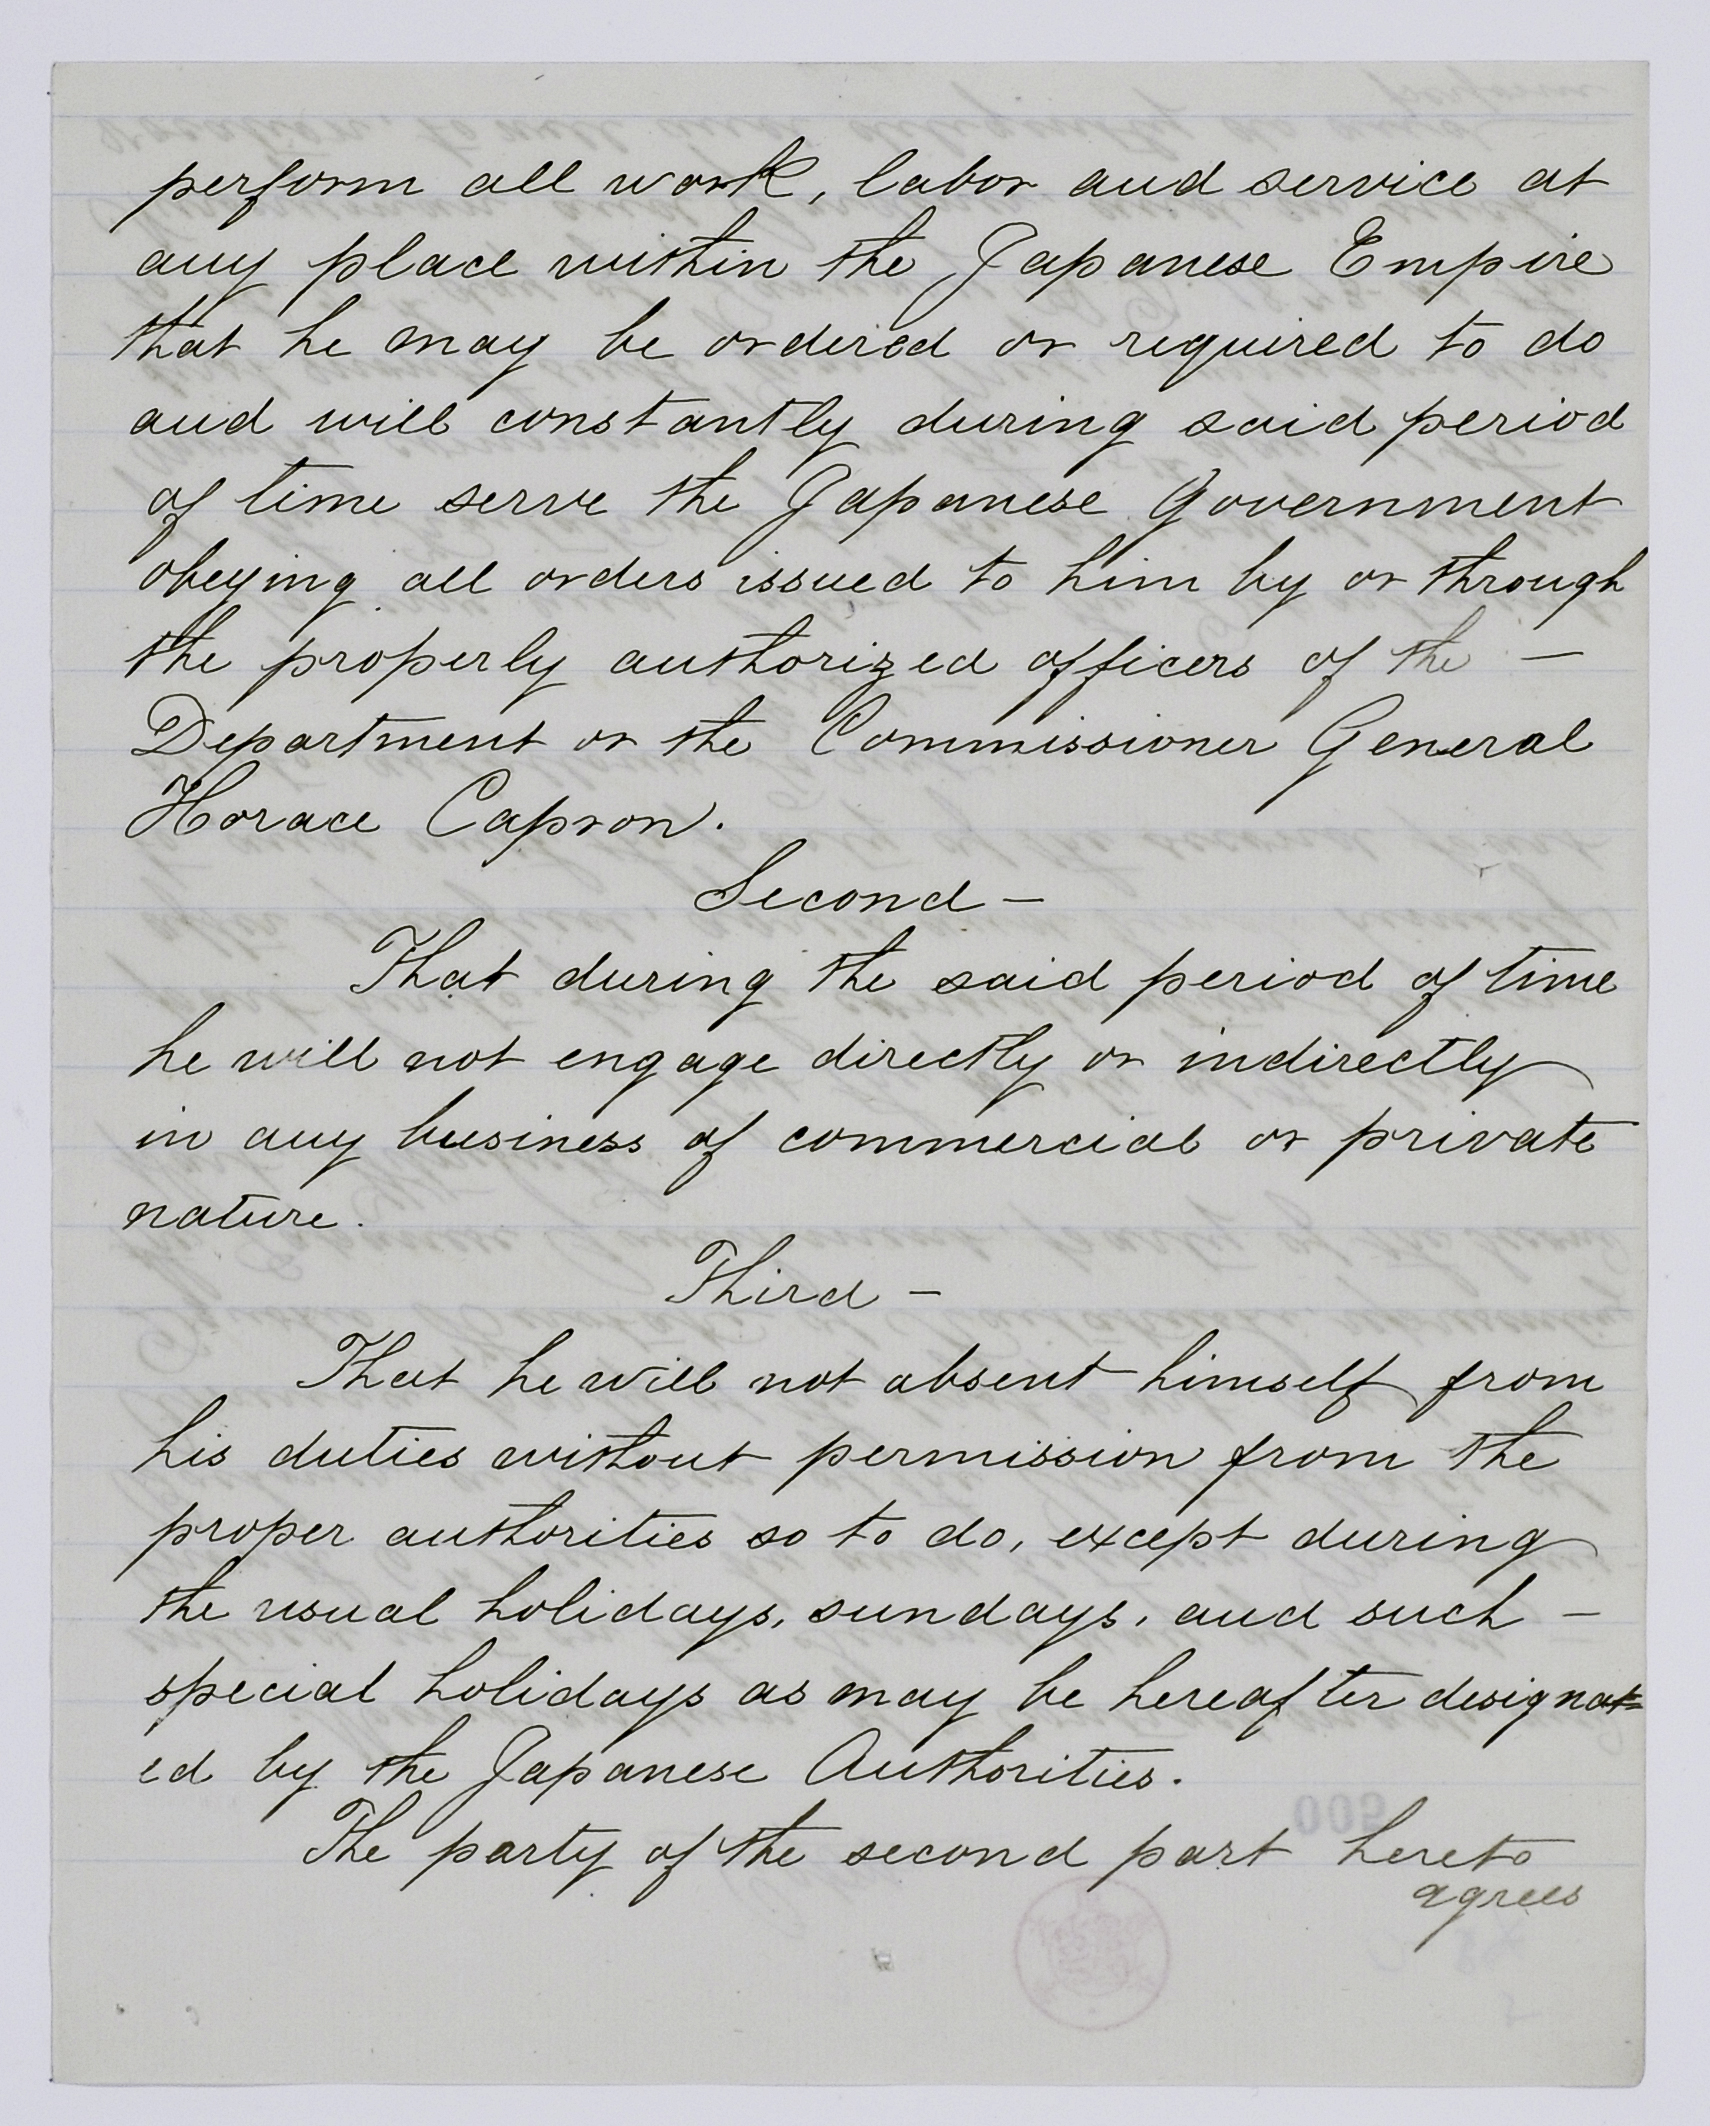 perform all work, labor and service at
any place within the Japanese Empire
that he may be ordered or required to do
and will constantly during said period
of time serve the Japanese Government
obeying all orders issued to him by or through
the properly authorized officers of the —
Department or the Commissioner General
Horace Capron.
Second —
That during the said period of time
he will not engage directly or indirectly
in any business of commercial or private
nature.
Third —
That he will not absent himself from
his duties without permission from the
proper authorities so to do, except during
the usual holidays, sundays, and such —
special holidays as may be hereafter designat=
ed by the Japanese Authorities.
005
The party of the second part hereto
agrees